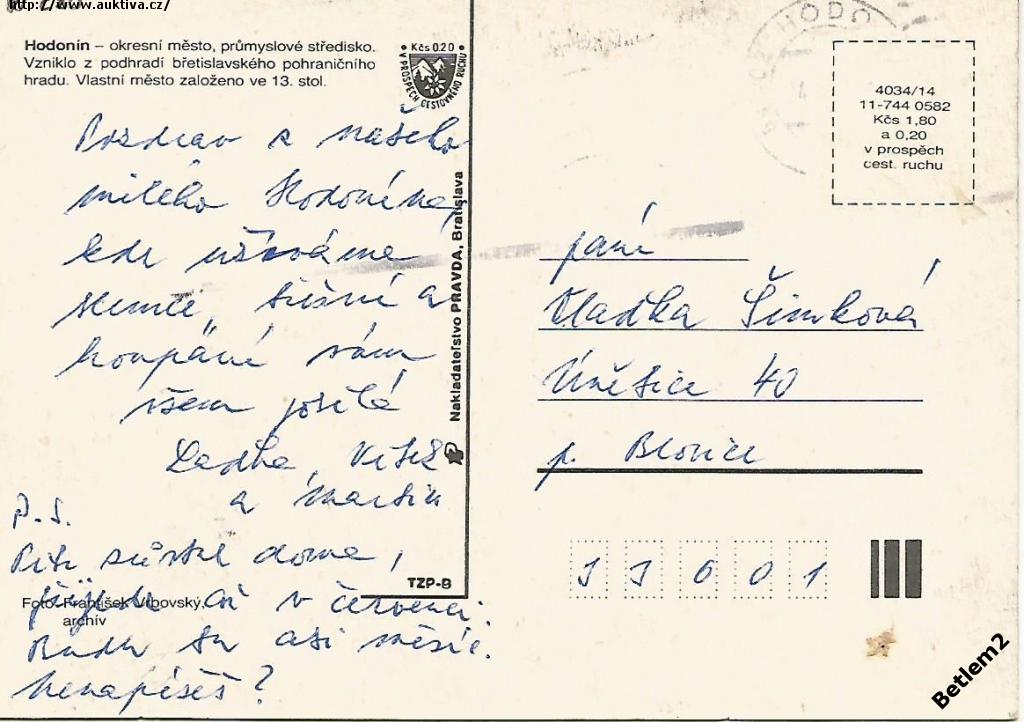 http://www.auktiva.cz/
Hodonín – okresní město, průmyslové středisko.
Vzniklo z podhradí břetislavského pohraničního
hradu. Vlastní město založeno ve 13. stol.
Kčs 0.20
V PROSPĚCH CESTOVNÉHO RUCHU
Pozdrav z našeho
milého Hodonína,
kde užíváme
slunce,
koupání vám
všem posílá
Laďka, Vítek
a Martin
P.S.
Petr zůstal doma,
přijede až v červenci.
Budu tu asi měsíc.
Nenapíšeš?
Foto: František Vrbovský,
archív
TZP-B
Nakladateľstvo PRAVDA, Bratislava
HODO
4034/14
11-744 0582
Kčs 1,80
a 0,20
v prospěch
cest. ruchu
paní
Vlaďka Šimková
Únětice 40
p. Blovice
33601
Betlem2